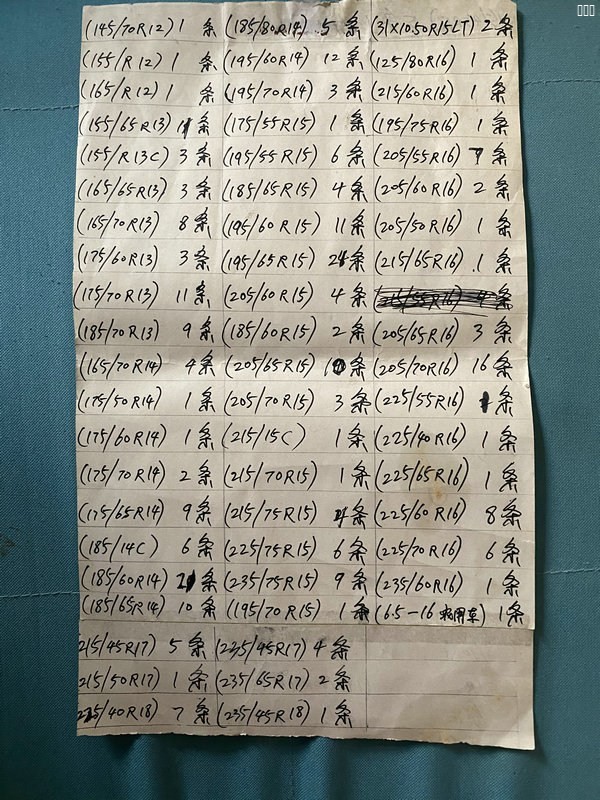 (145/70R12) 1 条 (185/80R14) 5 条 (31X10.50R15LT) 2 条
(155/R12) 1 条 (195/60R14) 12 条 (125/80R16) 1 条
(165/R12) 1 条 (195/70R14) 3 条 (215/60R16) 1 条
(155/65R13) 条 (175/55R15) 1 条 (195/75R16) 1 条
(155/R13C) 3 条 (195/55R15) 6 条 (205/55R16) 条
(165/65R13) 3 条 (185/65R15) 4 条 (205/60R16) 2 条
(165/70R13) 8 条 (195/60R15) 11 条 (205/50R16) 1 条
(175/60R13) 3 条 (195/65R15) 条 (215/65R16) 1 条
(175/70R13) 11 条 (205/60R15) 4 条 条
(185/70R13) 9 条 (185/60R15) 2 条 (205/65R16) 3 条
(165/70R14) 4 条 (205/65R15) 条 (205/70R16) 16 条
(175/50R14) 1 条 (205/70R15) 3 条 (225/55R16) 条
(175/60R14) 1 条 (215/15C) 1 条 (225/40R16) 1 条
(175/70R14) 2 条 (215/70R15) 1 条 (225/65R16) 1 条
(175/65R14) 9 条 (215/75R15) 条 (225/60R16) 8 条
(185/14C) 6 条 (225/75R15) 6 条 (225/70R16) 6 条
(185/60R14) 条 (235/75R15) 9 条 (235/60R16) 1 条
(185/65R14) 10 条 (195/70R15) 1 条 (6.5—16 乘用车) 1 条
215/45R17) 5 条 (235/45R17) 4 条
215/50R17) 1 条 (235/65R17) 2 条
/40R18) 7 条 (235/45R18) 1 条